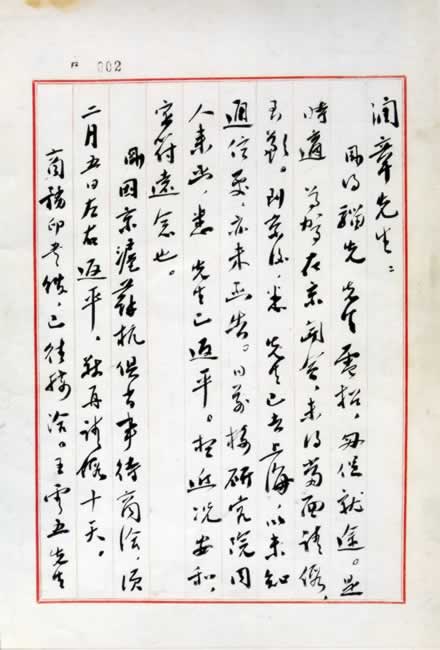 002
潤章先生：
剛得騮先先生電招，匆促就途。是
時適 尊駕在京開會，未得當面請假，
至歉。到京後，悉 先生已去上海，以未知
通信處，亦未函告。日前接研究院同
人來函，悉 先生已返平。想近況安和，
定符遠念也。
剛因京滬蘇杭俱有事待商洽，須
二月五日左右返平，敬再請假十天。
商務印書館，已往接洽。王雲五先生